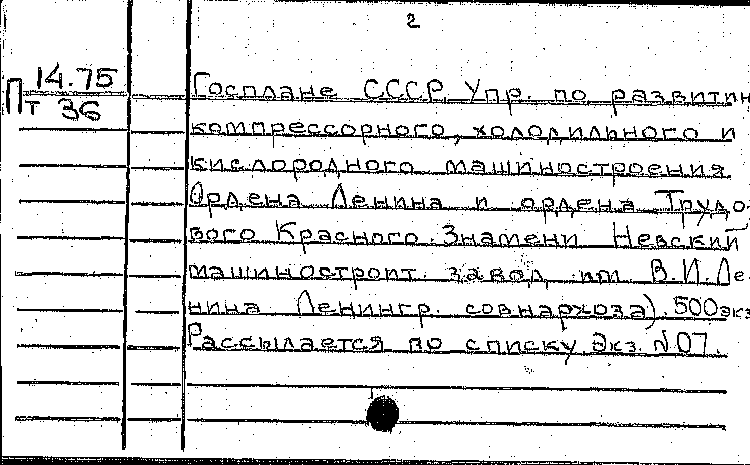 2
14.75
Пт 36
Госплане СССР. Упр. по развитию
компрессорного, холодильного и
кислородного машиностроения
Ордена Ленина и ордена Трудо-
вого Красного Знамени Невский
машиностроит. завод им В.И.Ле-
нина Ленингр. совнархоза). 500экз
Рассылается по списку. Экз. №07.